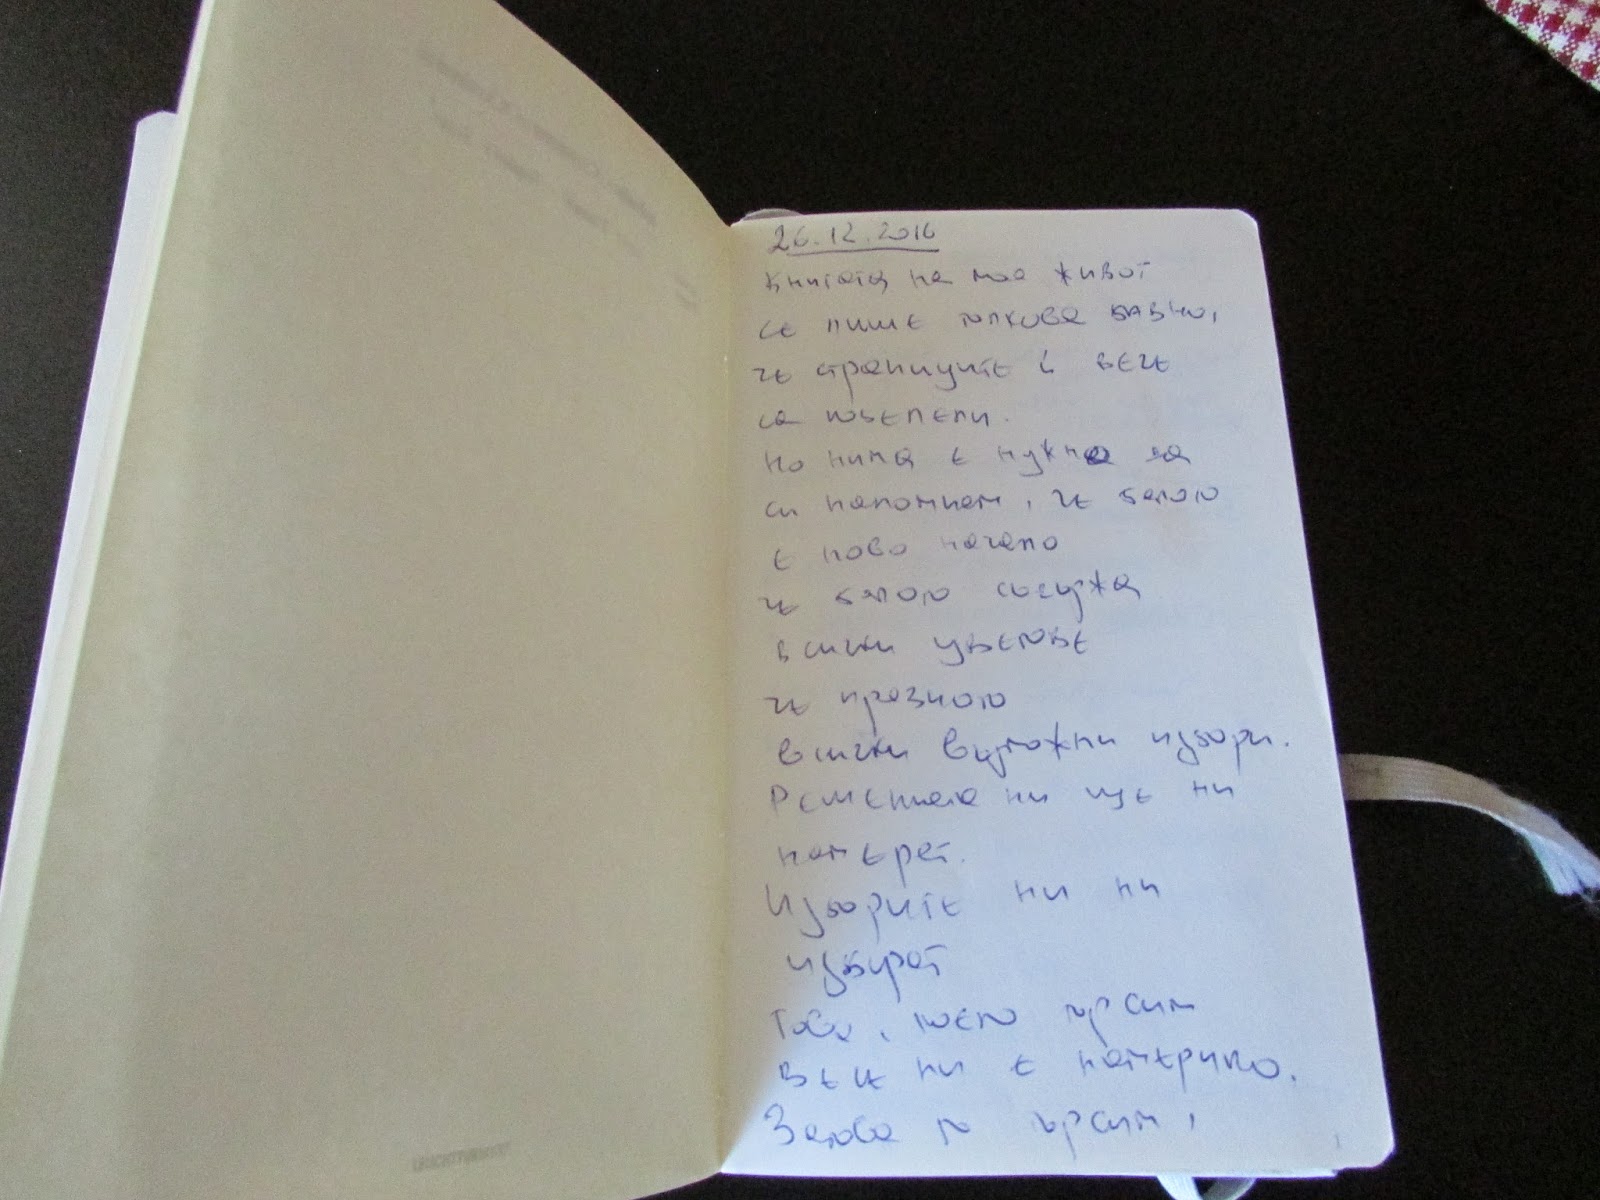 26.12.2016
Книгата на моя живот
се пише толкова бавно,
че страниците ѝ вече
са пожълтели.
Но нима е нужно да
си напомням, че бялото
е ново начало
че бялото съдържа
всички цветове
че празното
всички възможни избори.
Решенията ни ще ни
намерят.
Изборите ни ни
избират
Това, което търсим
вече ни е намерило.
Затова го търсим,
LEUCHTTURM1917